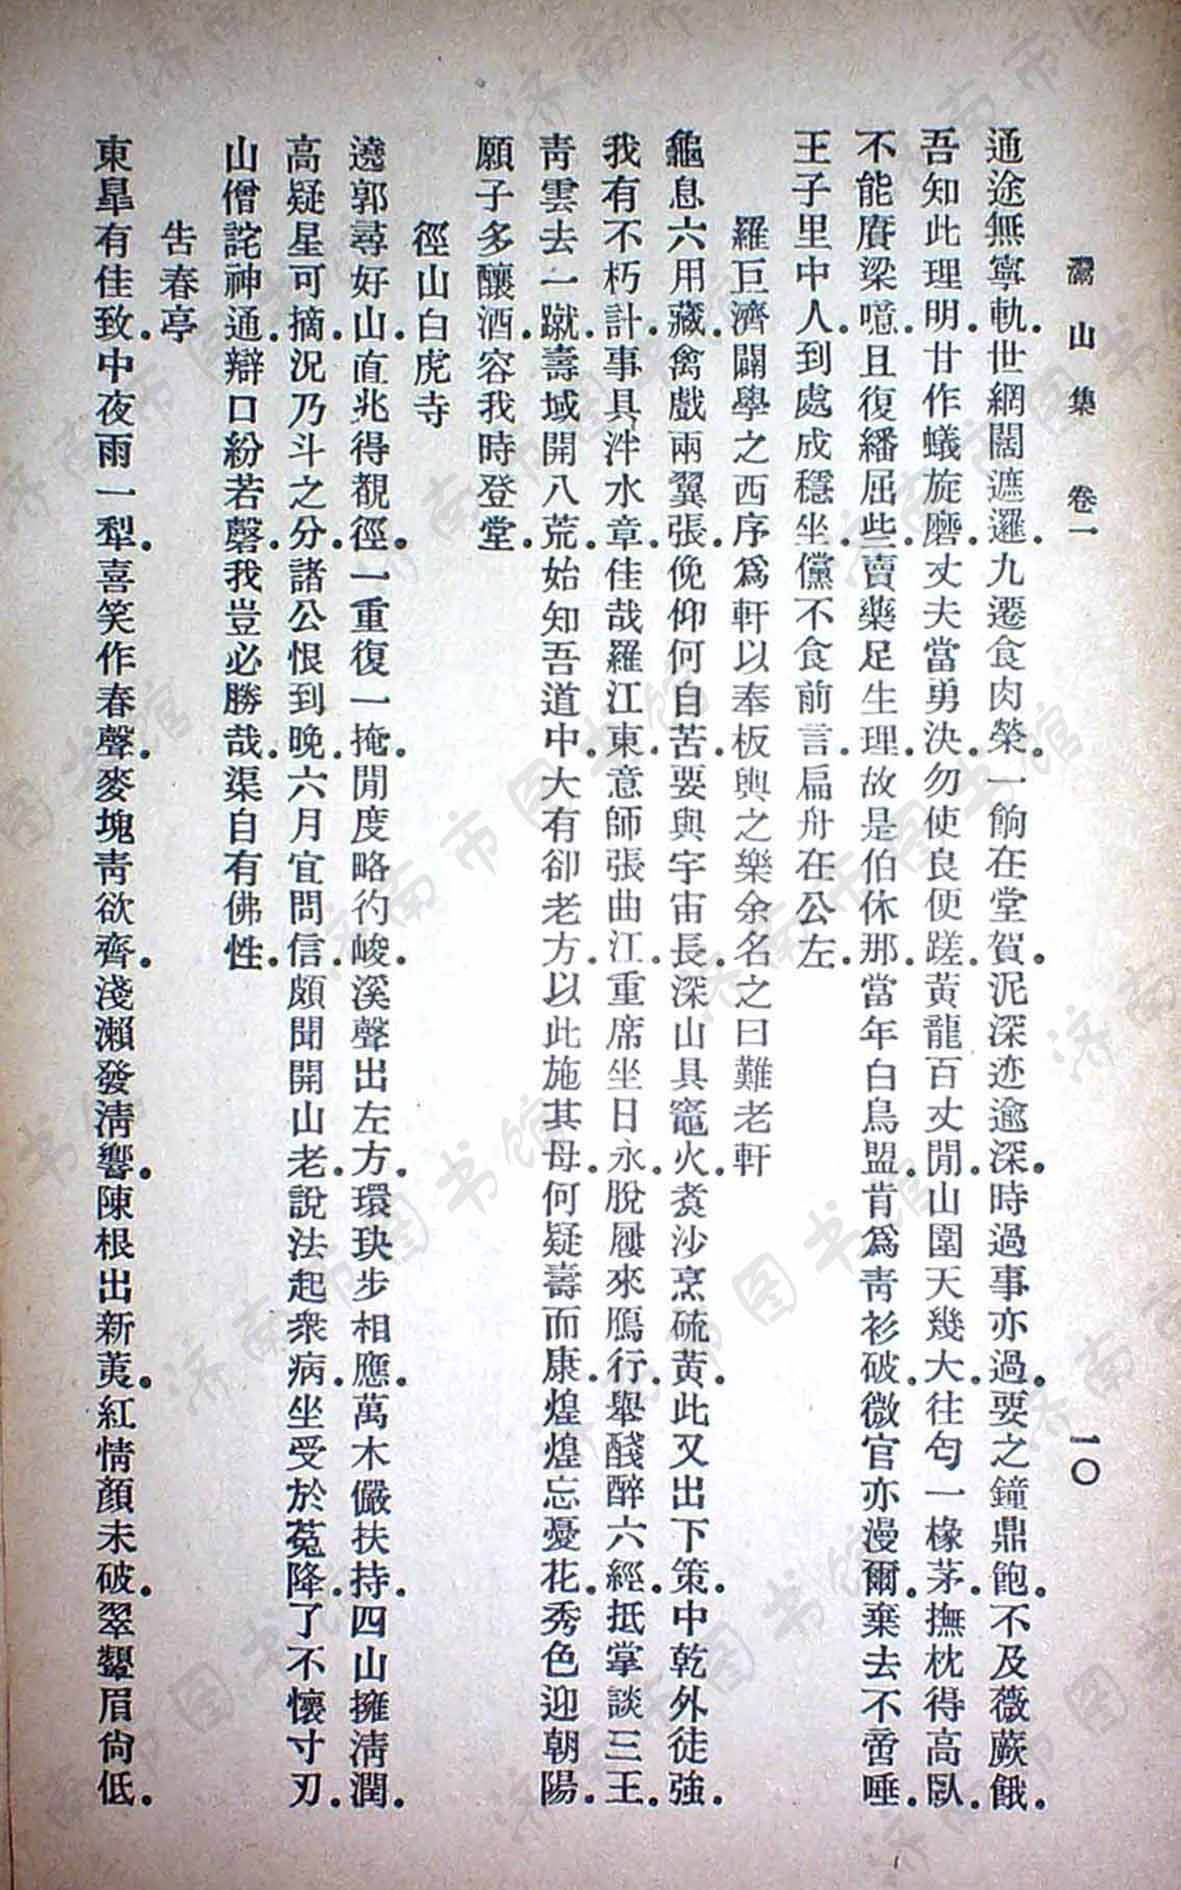 灊山集 卷一 一〇
通途無寧軌．世網闊遮邏．九遷食肉榮．一餉在堂賀．泥深迹逾深．時過事亦過．要之鐘鼎飽．不及薇蕨餓．
吾知此理明．甘作蟻旋磨．丈夫當勇決．勿使良便蹉．黃龍百丈閒．山圍天幾大．往匄一椽茅．撫枕得高臥．
不能賡梁噫．且復繙屈些．賣藥足生理．故是伯休那．當年白鳥盟．肯爲靑衫破．微官亦漫爾．棄去不啻唾．
王子里中人．到處成穩坐．儻不食前言．扁舟在公左．
羅巨濟闢學之西序爲軒以奉板輿之樂余名之曰難老軒
龜息六用藏．禽戲兩翼張．俛仰何自苦．要與宇宙長．深山具竈火．煑沙烹硫黃．此又出下策．中乾外徒強．
我有不朽計．事具泮水章．佳哉羅江東．意師張曲江．重席坐日永．脫屨來鴈行．舉醆醉六經．抵掌談三王．
靑雲去一蹴．壽域開八荒．始知吾道中．大有卻老方．以此施其母．何疑壽而康．煌煌忘憂花．秀色迎朝陽．
願子多釀酒．容我時登堂．
徑山白虎寺
遶郭尋好山．直兆得覩徑．一重復一掩．閒度略彴峻．溪聲出左方．環玦步相應．萬木儼扶持．四山擁淸潤．
高疑星可摘．況乃斗之分．諸公恨到晚．六月宜問信．頗聞開山老．說法起衆病．坐受於菟降．了不懷寸刃．
山僧詫神通．辯口紛若磬．我豈必勝哉．渠自有佛性．
告春亭
東臯有佳致．中夜雨一犁．喜笑作春聲．麥塊靑欲齊．淺瀨發淸響．陳根出新荑．紅情顏未破．翠顰眉尙低．
济南市图书馆